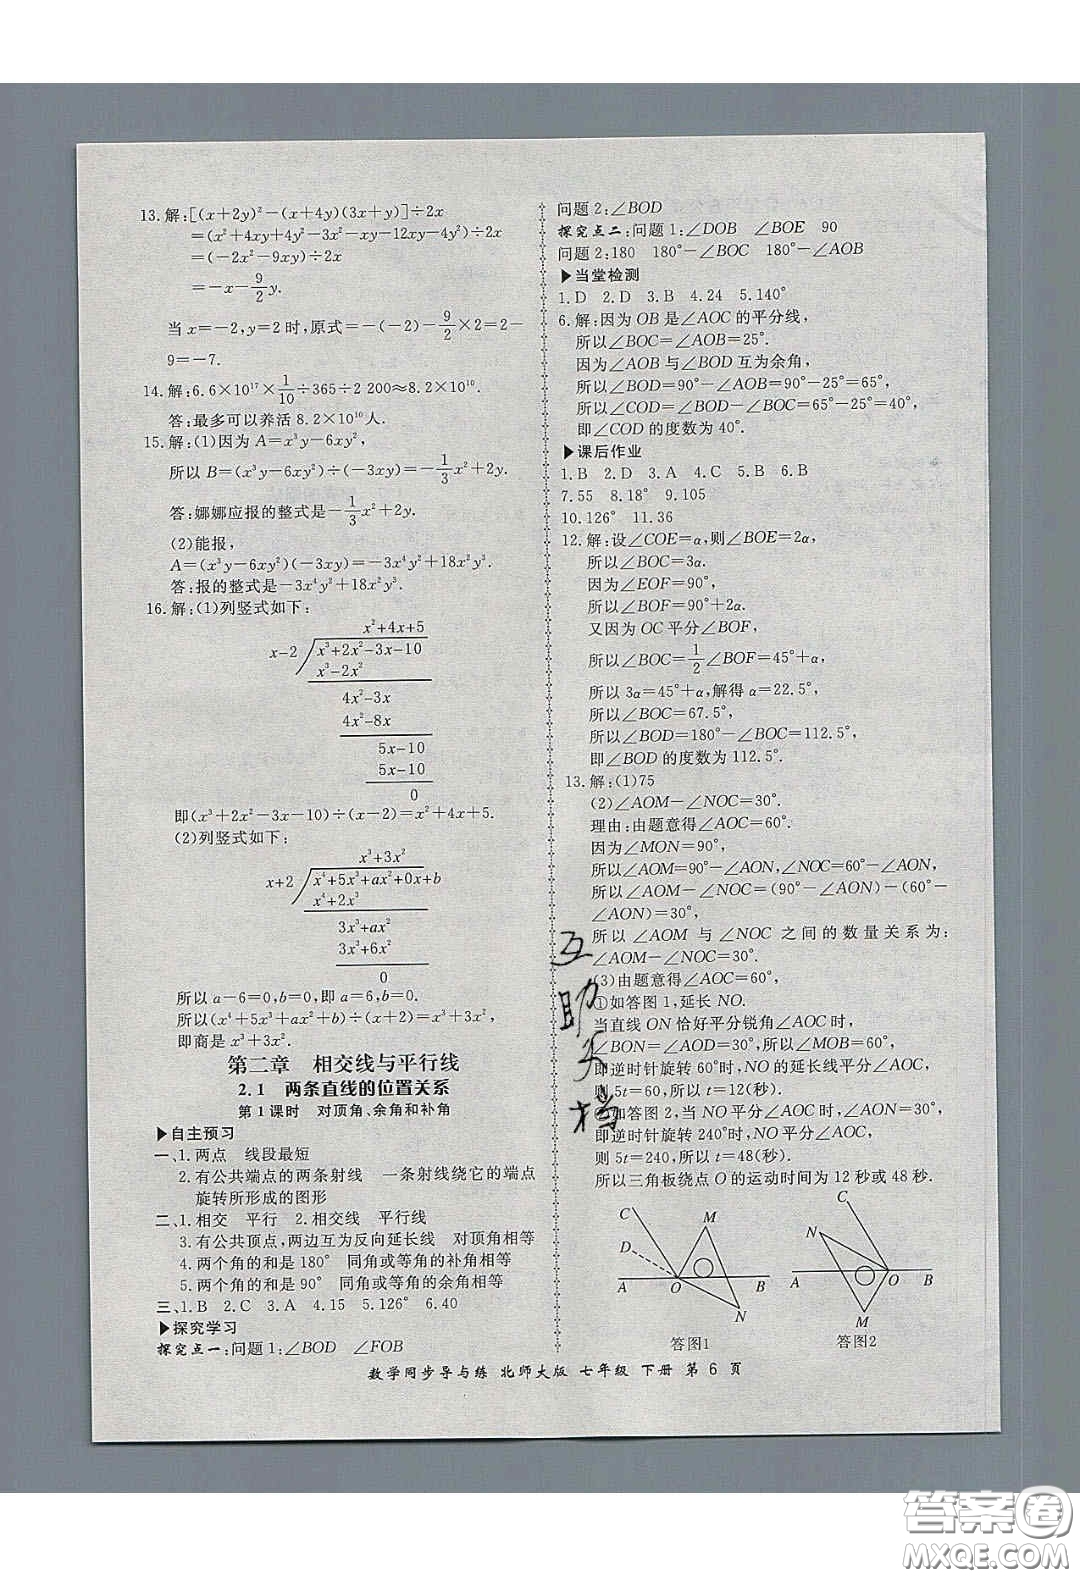 13.解:[(x+2y)²-(x+4y)(3x+y)]÷2x
=(x²+4xy+4y²-3x²-xy-12xy-4y²)÷2x
=(-2x²-9xy)÷2x
=-x-9/2y.
当x=-2,y=2时,原式=-(-2)-9/2×2=2-
9=-7.
14.解:6.6×10¹⁷×1/10÷365÷2 200≈8.2×10¹⁰.
答:最多可以养活8.2×10¹⁰人.
15.解:(1)因为A=x³y-6xy²,
所以B=(x³y-6xy²)÷(-3xy)=-1/3x²+2y.
答:娜娜应报的整式是-1/3x²+2y.
(2)能报,
A=(x³y-6xy²)(-3xy)=-3x⁴y²+18x²y³.
答:报的整式是-3x⁴y²+18x²y³.
16.解:(1)列竖式如下:
x²+4x+5
x-2 x³+2x²-3x-10
x³-2x²
4x²-3x
4x²-8x
5x-10
5x-10
0
即(x³+2x²-3x-10)÷(x-2)=x²+4x+5.
(2)列竖式如下:
x³+3x²
x+2 x⁴+5x³+ax²+0x+b
x⁴+2x³
3x³+ax²
3x³+6x²
0
所以a-6=0,b=0,即a=6,b=0.
所以(x⁴+5x³+ax²+b)÷(x+2)=x³+3x²,
即商是x³+3x².
第二章 相交线与平行线
2.1 两条直线的位置关系
第1课时 对顶角、余角和补角
▶自主预习
一、1.两点 线段最短
2.有公共端点的两条射线 一条射线绕它的端点
旋转所形成的图形
二、1.相交 平行 2.相交线 平行线
3.有公共顶点,两边互为反向延长线 对顶角相等
4.两个角的和是180° 同角或等角的补角相等
5.两个角的和是90° 同角或等角的余角相等
三、1.B 2.C 3.A 4.15 5.126° 6.40
▶探究学习
探究点一:问题1:∠BOD ∠FOB
问题2:∠BOD
探究点二:问题1:∠DOB ∠BOE 90
问题2:180 180°-∠BOC 180°-∠AOB
▶当堂检测
1.D 2.D 3.B 4.24 5.140°
6.解:因为OB是∠AOC的平分线,
所以∠BOC=∠AOB=25°.
因为∠AOB与∠BOD互为余角,
所以∠BOD=90°-∠AOB=90°-25°=65°,
所以∠COD=∠BOD-∠BOC=65°-25°=40°,
即∠COD的度数为40°.
▶课后作业
1.B 2.D 3.A 4.C 5.B 6.B
7.55 8.18° 9.105
10.126° 11.36
12.解:设∠COE=α,则∠BOE=2α,
所以∠BOC=3α.
因为∠EOF=90°,
所以∠BOF=90°+2α.
又因为OC平分∠BOF,
所以∠BOC=1/2∠BOF=45°+α,
所以3α=45°+α,解得α=22.5°,
所以∠BOC=67.5°,
所以∠BOD=180°-∠BOC=112.5°,
即∠BOD的度数为112.5°.
13.解:(1)75
(2)∠AOM-∠NOC=30°.
理由:由题意得∠AOC=60°.
因为∠MON=90°,
所以∠AOM=90°-∠AON,∠NOC=60°-∠AON,
所以∠AOM-∠NOC=(90°-∠AON)-(60°-
∠AON)=30°,
所以∠AOM与∠NOC之间的数量关系为:
∠AOM-∠NOC=30°.
(3)由题意得∠AOC=60°,
①如答图1,延长NO.
当直线ON恰好平分锐角∠AOC时,
∠BON=∠AOD=30°,所以∠MOB=60°,
即逆时针旋转60°时,NO的延长线平分∠AOC,
则5t=60,所以t=12(秒).
②如答图2,当NO平分∠AOC时,∠AON=30°,
即逆时针旋转240°时,NO平分∠AOC,
则5t=240,所以t=48(秒).
所以三角板绕点O的运动时间为12秒或48秒.
C M
D
A O B
N
答图1
C
N
A O B
M
答图2
互助文档
数学同步导与练 北师大版 七年级 下册 第6页
答案圈
MXQE.COM